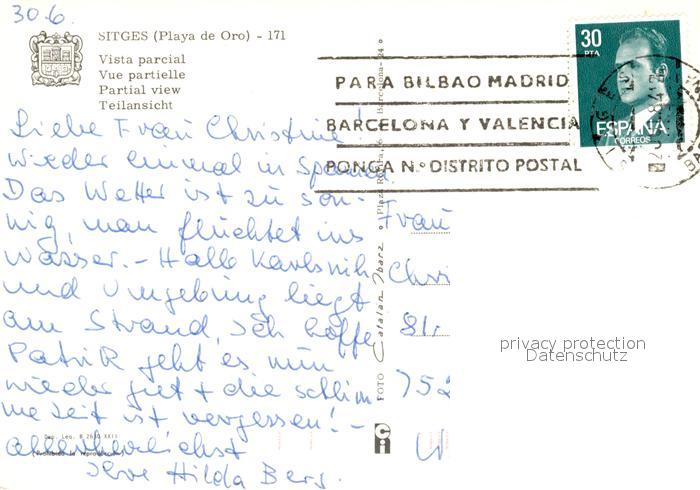 30.6.
SITGES (Playa de Oro) - 171
Vista parcial
Vue partielle
Partial view
Teilansicht
30
PTA
ESPAÑA
CORREOS
PARA BILBAO MADRID
BARCELONA Y VALENCIA
PONGA N.º DISTRITO POSTAL
Liebe Frau Christine!
wieder einmal in Spanien.
Das Wetter ist zu son-
nig, man flüchtet ins
Wasser. - Halb Karlsruh
und Umgebung liegt
am Strand, ich hoffe,
Patrik geht es nun
wieder gut + die schlim-
me Zeit ist vergessen! -
allerherzlichst
Ihre Hilda Berg.
Frau
Chri
752
W
FOTO Catalan Ibarz
Barcelona-24
Dep. Leg. B XXII
(Prohibida la reproducción)
privacy protection
Datenschutz